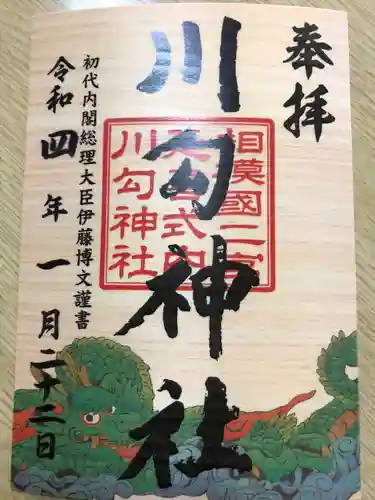 奉拝
川勾神社
相模國二宮
延喜式内
川勾神社
初代内閣総理大臣伊藤博文謹書
令和四年一月二十二日